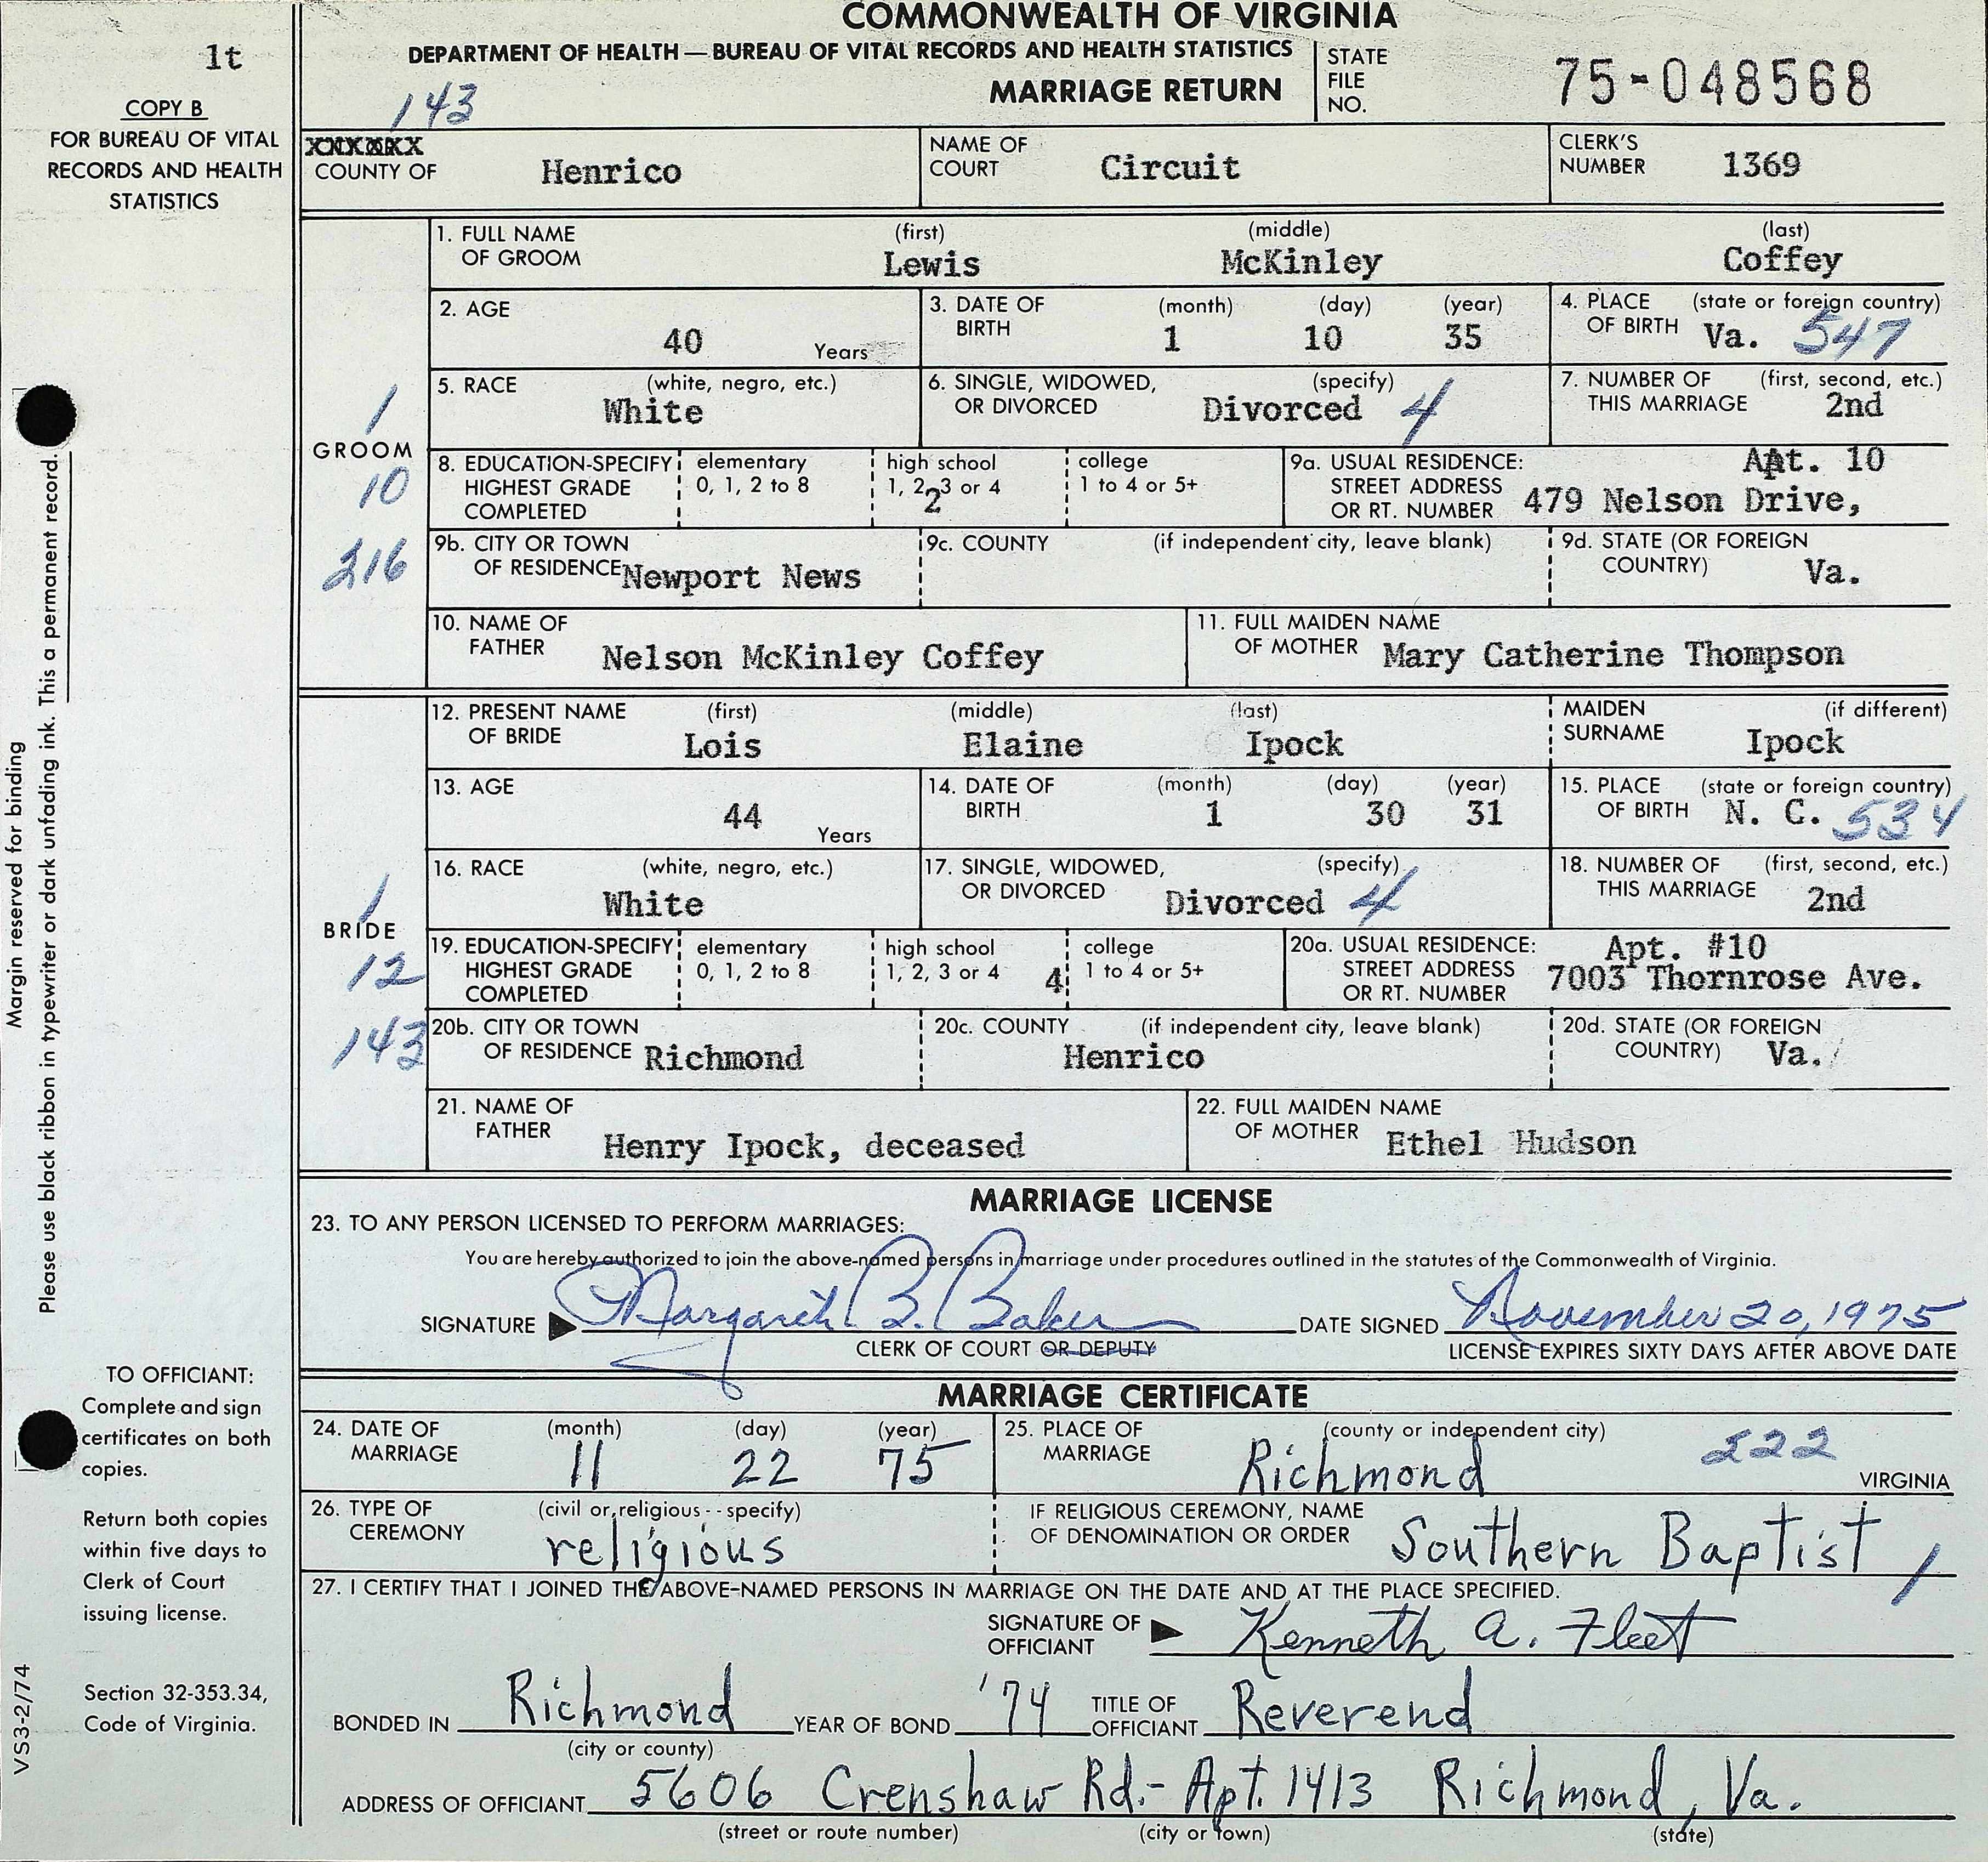 COMMONWEALTH OF VIRGINIA
1t
DEPARTMENT OF HEALTH — BUREAU OF VITAL RECORDS AND HEALTH STATISTICS
MARRIAGE RETURN
STATE FILE NO. 75-048568
COPY B
FOR BUREAU OF VITAL
RECORDS AND HEALTH
STATISTICS
143
COUNTY OF Henrico
NAME OF COURT Circuit
CLERK'S NUMBER 1369
1. FULL NAME OF GROOM (first) Lewis (middle) McKinley (last) Coffey
2. AGE 40 Years
3. DATE OF BIRTH (month) 1 (day) 10 (year) 35
4. PLACE OF BIRTH (state or foreign country) Va. 547
5. RACE (white, negro, etc.) White
6. SINGLE, WIDOWED, OR DIVORCED (specify) Divorced 4
7. NUMBER OF THIS MARRIAGE (first, second, etc.) 2nd
1
GROOM
10
216
8. EDUCATION-SPECIFY HIGHEST GRADE COMPLETED
elementary 0, 1, 2 to 8
high school 1, 2, 3 or 4 2
college 1 to 4 or 5+
9a. USUAL RESIDENCE: STREET ADDRESS OR RT. NUMBER Apt. 10
479 Nelson Drive,
9b. CITY OR TOWN OF RESIDENCE Newport News
9c. COUNTY (if independent city, leave blank)
9d. STATE (OR FOREIGN COUNTRY) Va.
10. NAME OF FATHER Nelson McKinley Coffey
11. FULL MAIDEN NAME OF MOTHER Mary Catherine Thompson
12. PRESENT NAME OF BRIDE (first) Lois (middle) Elaine (last) Ipock
MAIDEN SURNAME (if different) Ipock
13. AGE 44 Years
14. DATE OF BIRTH (month) 1 (day) 30 (year) 31
15. PLACE OF BIRTH (state or foreign country) N. C. 534
16. RACE (white, negro, etc.) White
17. SINGLE, WIDOWED, OR DIVORCED (specify) Divorced 4
18. NUMBER OF THIS MARRIAGE (first, second, etc.) 2nd
1
BRIDE
12
143
19. EDUCATION-SPECIFY HIGHEST GRADE COMPLETED
elementary 0, 1, 2 to 8
high school 1, 2, 3 or 4 4
college 1 to 4 or 5+
20a. USUAL RESIDENCE: STREET ADDRESS OR RT. NUMBER Apt. #10
7003 Thornrose Ave.
20b. CITY OR TOWN OF RESIDENCE Richmond
20c. COUNTY (if independent city, leave blank) Henrico
20d. STATE (OR FOREIGN COUNTRY) Va.
21. NAME OF FATHER Henry Ipock, deceased
22. FULL MAIDEN NAME OF MOTHER Ethel Hudson
MARRIAGE LICENSE
23. TO ANY PERSON LICENSED TO PERFORM MARRIAGES:
You are hereby authorized to join the above-named persons in marriage under procedures outlined in the statutes of the Commonwealth of Virginia.
SIGNATURE Margaret B. Baker DATE SIGNED November 20, 1975
CLERK OF COURT OR DEPUTY
LICENSE EXPIRES SIXTY DAYS AFTER ABOVE DATE
MARRIAGE CERTIFICATE
24. DATE OF MARRIAGE (month) 11 (day) 22 (year) 75
25. PLACE OF MARRIAGE (county or independent city) Richmond 222 VIRGINIA
26. TYPE OF CEREMONY (civil or religious -- specify) religious
IF RELIGIOUS CEREMONY, NAME OF DENOMINATION OR ORDER Southern Baptist 1
27. I CERTIFY THAT I JOINED THE ABOVE-NAMED PERSONS IN MARRIAGE ON THE DATE AND AT THE PLACE SPECIFIED.
SIGNATURE OF OFFICIANT Kenneth A. Fleet
BONDED IN Richmond YEAR OF BOND '74 TITLE OF OFFICIANT Reverend
(city or county)
ADDRESS OF OFFICIANT 5606 Crenshaw Rd.- Apt. 1413 Richmond, Va.
(street or route number) (city or town) (state)
Margin reserved for binding
Please use black ribbon in typewriter or dark unfading ink. This a permanent record.
TO OFFICIANT:
Complete and sign
certificates on both
copies.
Return both copies
within five days to
Clerk of Court
issuing license.
Section 32-353.34,
Code of Virginia.
VS3-2/74